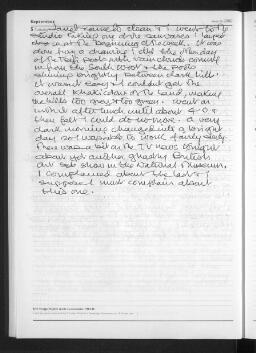 September
Janet came to clean & I went out to
studio taking one of the canvases I
at the beginning of the week. It was
done from a drawing I did the Monday
of the Teifi pools with rain clouds coming
in from the South West & the pools
shining brightly between dark hills.
It wasn't easy & I couldn't get the
overall khaki colour of the land, making
the hills too grey & too green. Went on
with it after lunch until about 4.0 &
then felt I could do no more. A very
dark morning changed into a bright
day so I was able to work fairly steadily.
There was a bit on the TV news tonight
about yet another ghastly British
art show in the National Museum.
I complained about the last & I
suppose I must complain about
this one.